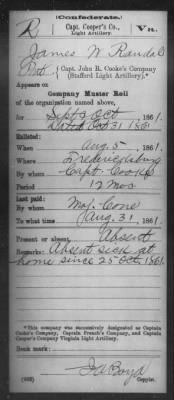 (Confederate.)
R Capt. Cooper's Co., Va.
Light Artillery.
James W. Randal
Pvt., Capt. John R. Cooke's Company
(Stafford Light Artillery).*
Appears on
Company Muster Roll
of the organization named above,
for Sept & Oct, 1861.
Dated Oct 31 1861
Enlisted:
When Aug 5, 1861.
Where Fredericksburg
By whom Capt Cooke
Period 12 Mos
Last paid:
By whom Maj. Cone
To what time Aug. 31, 1861.
Present or absent Absent
Remarks: Absent sick at
home since 25 Oct. 1861.
*This company was successively designated as Captain
Cooke's Company, Captain French's Company, and Captain
Cooper's Company Virginia Light Artillery.
Book mark:
J A Boyd
(642) Copyist.